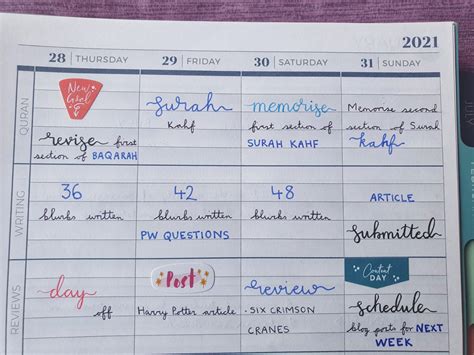 2021
28 THURSDAY
29 FRIDAY
30 SATURDAY
31 SUNDAY
QURAN
New Goal
revise first
section of BAQARAH
surah
kahf
memorise
first section of
SURAH KAHF
Memorise second
section of Surah
kahf
WRITING
36
blurbs written
42
blurbs written
PW QUESTIONS
48
blurbs written
ARTICLE
submitted
REVIEWS
day
off
Post
Harry Potter article
review
· SIX CRIMSON
CRANES
Content
DAY
schedule
blog posts for NEXT
WEEK